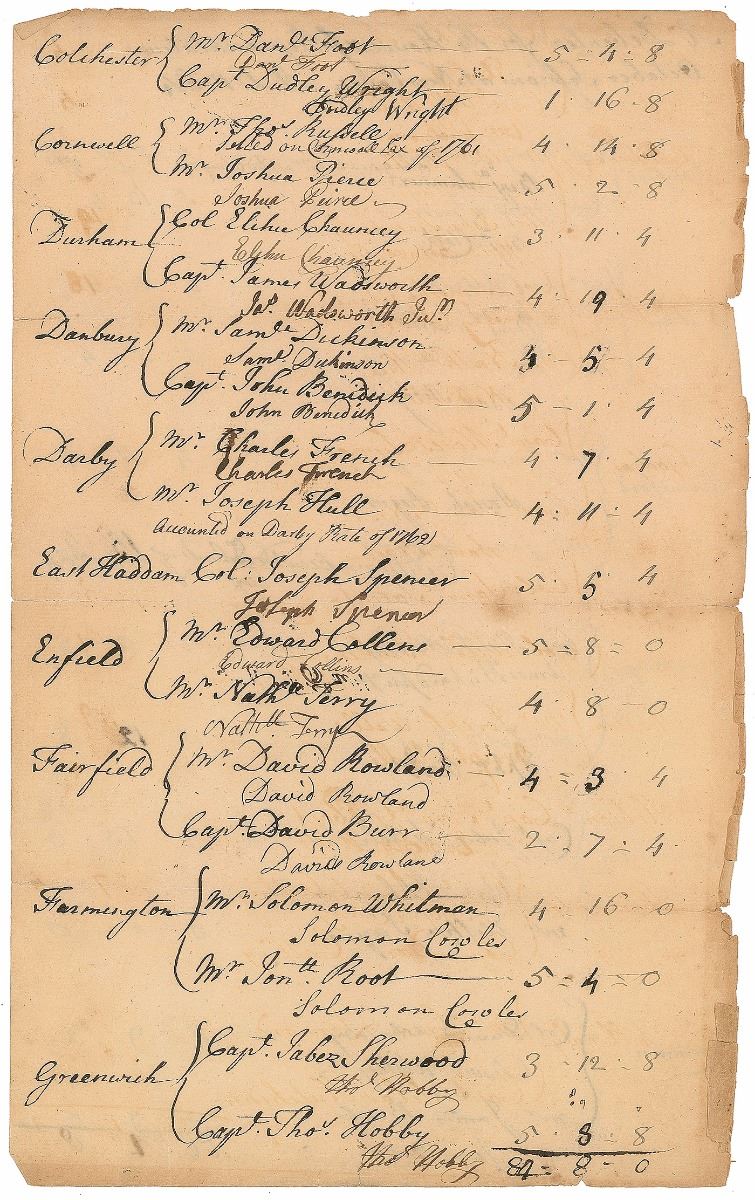 Colchester { Mr Danel Foot — 5 - 4 - 8
Danl Foot
Capt Dudley Wright — 1 - 16 - 8
Dudley Wright
Cornwell { Mr Thos Russell 4 - 14 - 8
Setled on Cornwall Tax of 1761
Mr Joshua Pierce — 5 - 2 - 8
Joshua Pierce
Durham { Col Elihu Chauncey — 3 - 11 - 4
Elihu Chauncey
Capt James Wadsworth — 4 - 19 4
Jas Wadsworth Junr
Danbury { Mr Samel Dickinson — 5 - 4
Saml Dickinson
Capt John Benidick — 5 - 1 - 4
John Benedick
Darby { Mr Charles French — 4 - 7 - 4
Charles French
Mr Joseph Hull — 4 - 11 - 4
Accounted on Darby Rate of 1762
East Haddam Col: Joseph Spencer 5 - 5 4
Joseph Spencer
Enfield { Mr Edward Collens — 5 = 8 = 0
Edward Collins
Mr Nathel Terry 4 - 8 - 0
Nathll Terry
Fairfield { Mr David Rowland — 4 = 3 - 4
David Rowland
Capt David Burr — 2 - 7 - 4
David Rowland
Farmington { Mr Solomon Whitman 4 - 16 - 0
Solomon Cowles
Mr Jonth Root — 5 = 4 = 0
Solomon Cowles
Greenwich { Capt. Jabez Sherwood 3 - 12 - 8
Thos Hobby
Capt. Thos Hobby 5 - 3 - 8
Thos Hobby 84 = 8 - 0